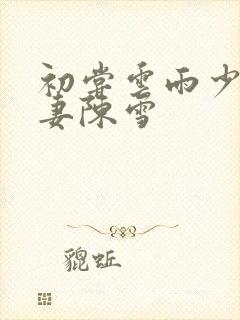 初尝雲雨少
妻陳雪
貔蚯